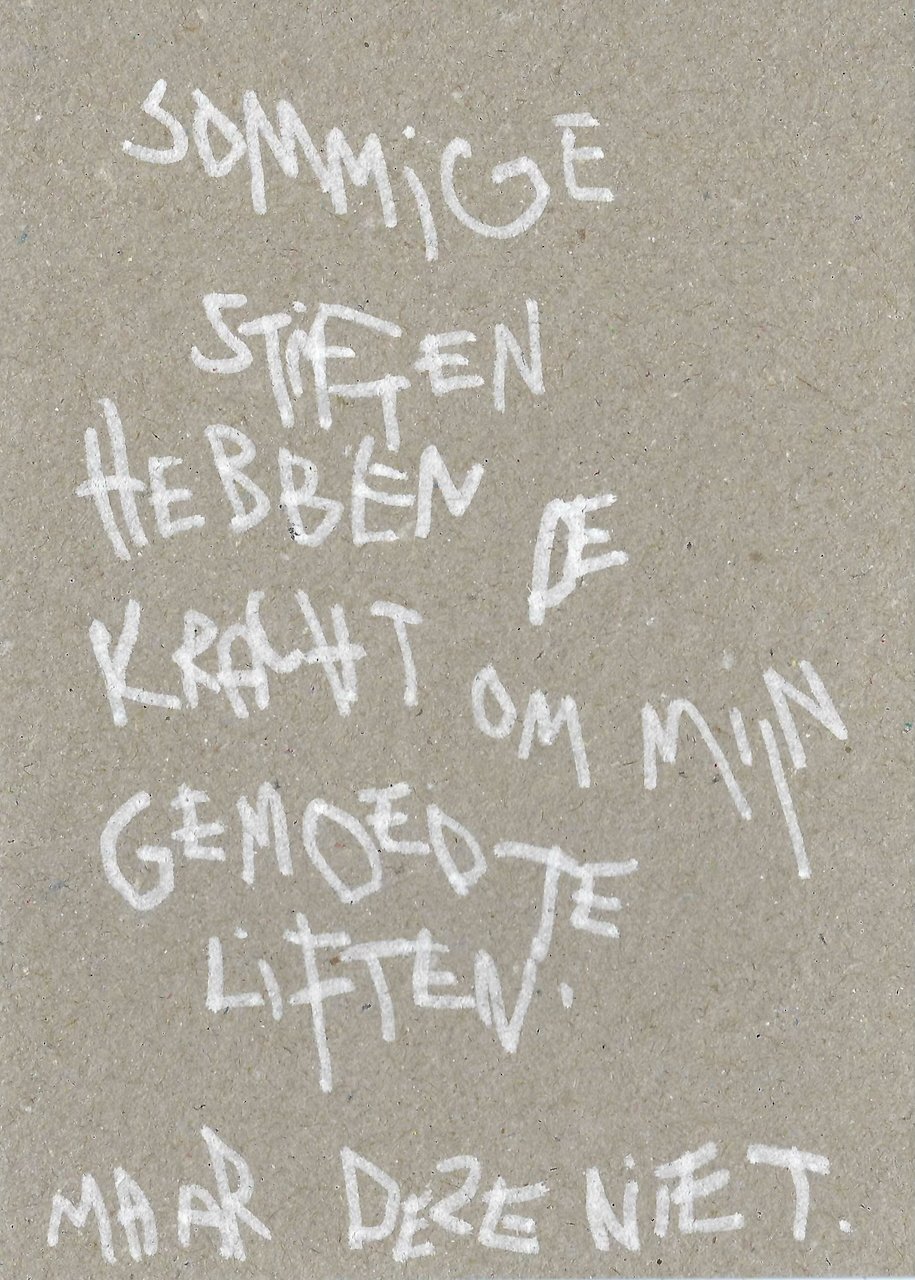 SOMMIGE
STIFTEN
HEBBEN DE
KRACHT OM MIJN
GEMOED TE
LIFTEN.
MAAR DEZE NIET.